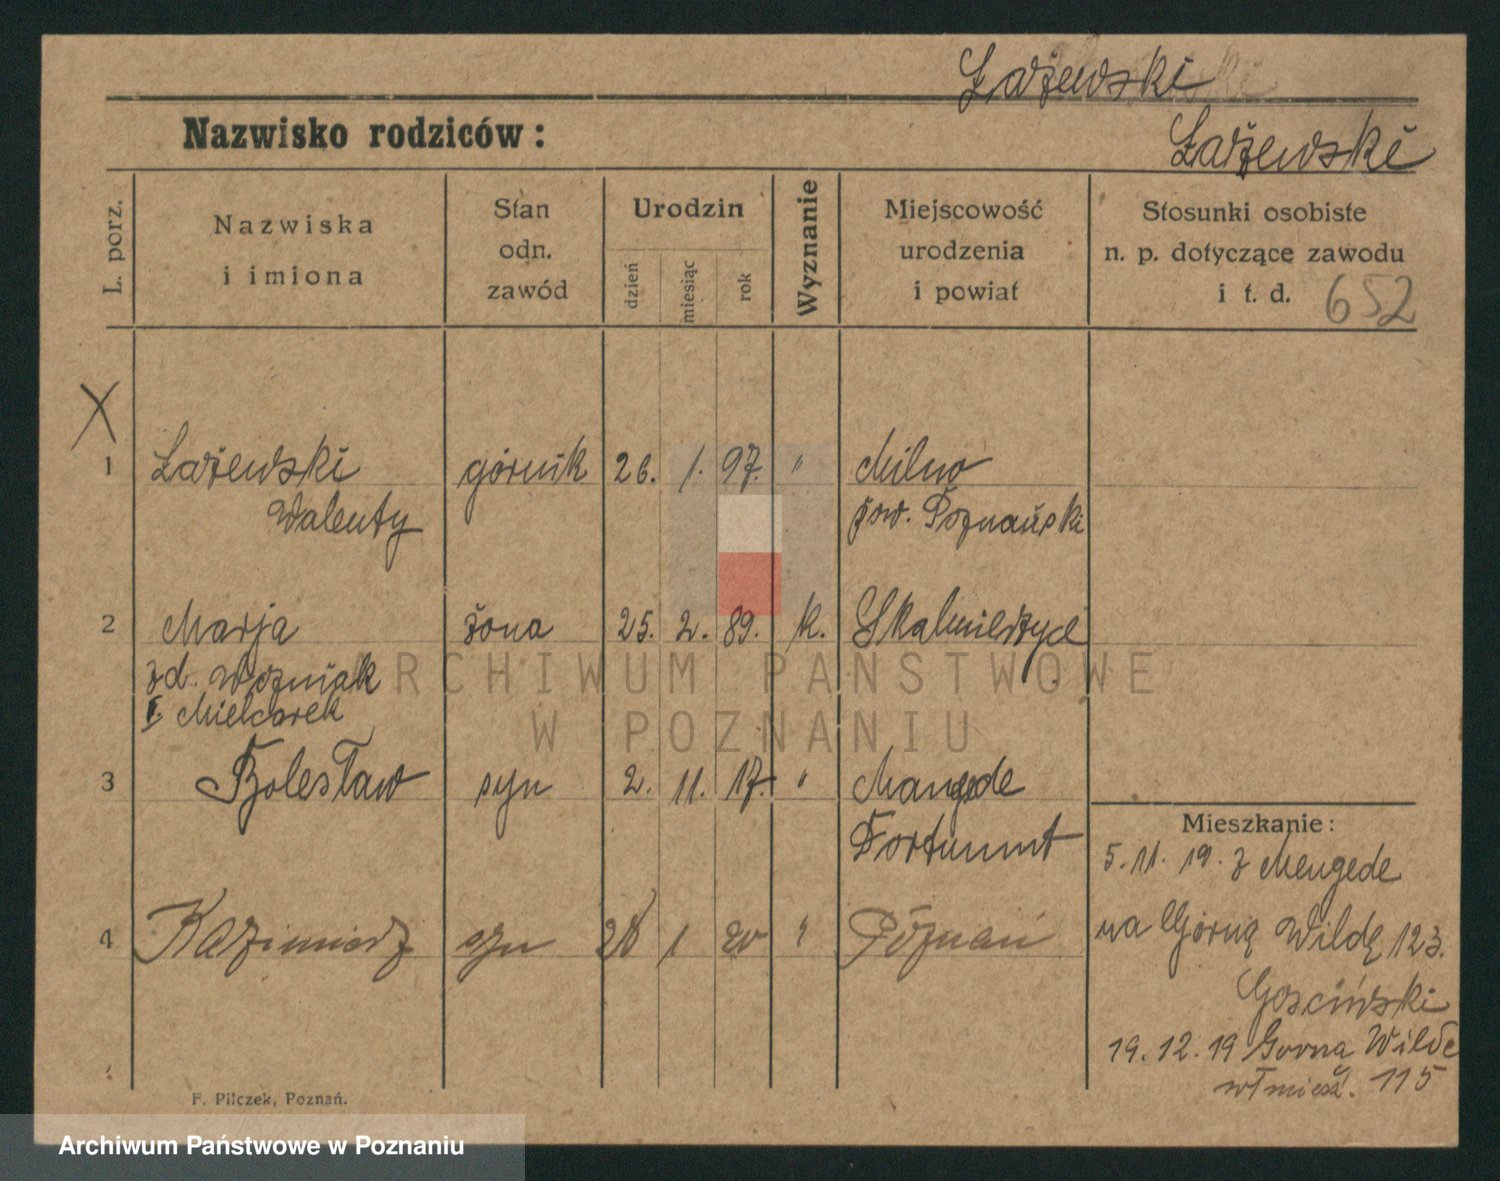 Łażewski
Nazwisko rodziców: Łażewski
L. porz.
Nazwiska
i imiona
Stan
odn.
zawód
Urodzin
dzień
miesiąc
rok
Wyznanie
Miejscowość
urodzenia
i powiat
Stosunki osobiste
n. p. dotyczące zawodu
i t. d. 652
X
1 Łażewski górnik 26. 1. 97. " Milno
Walenty pow. Poznański
2 Marja żona 25. 2. 89. k. Skalmierzyce
zd. Woźniak
I Mielcarek
3 Bolesław syn 2. 11. 17. " Mangede
Dortumnt
Mieszkanie:
5. 11. 19. z Mengede
4 Kazimierz syn 28 1 20 " Poznań
na Górną Wildę 123.
Gościński
19. 12. 19 Gorna Wilde
wł miesz. 115
F. Pilczek, Poznań.
ARCHIWUM PAŃSTWOWE
W POZNANIU
Archiwum Państwowe w Poznaniu